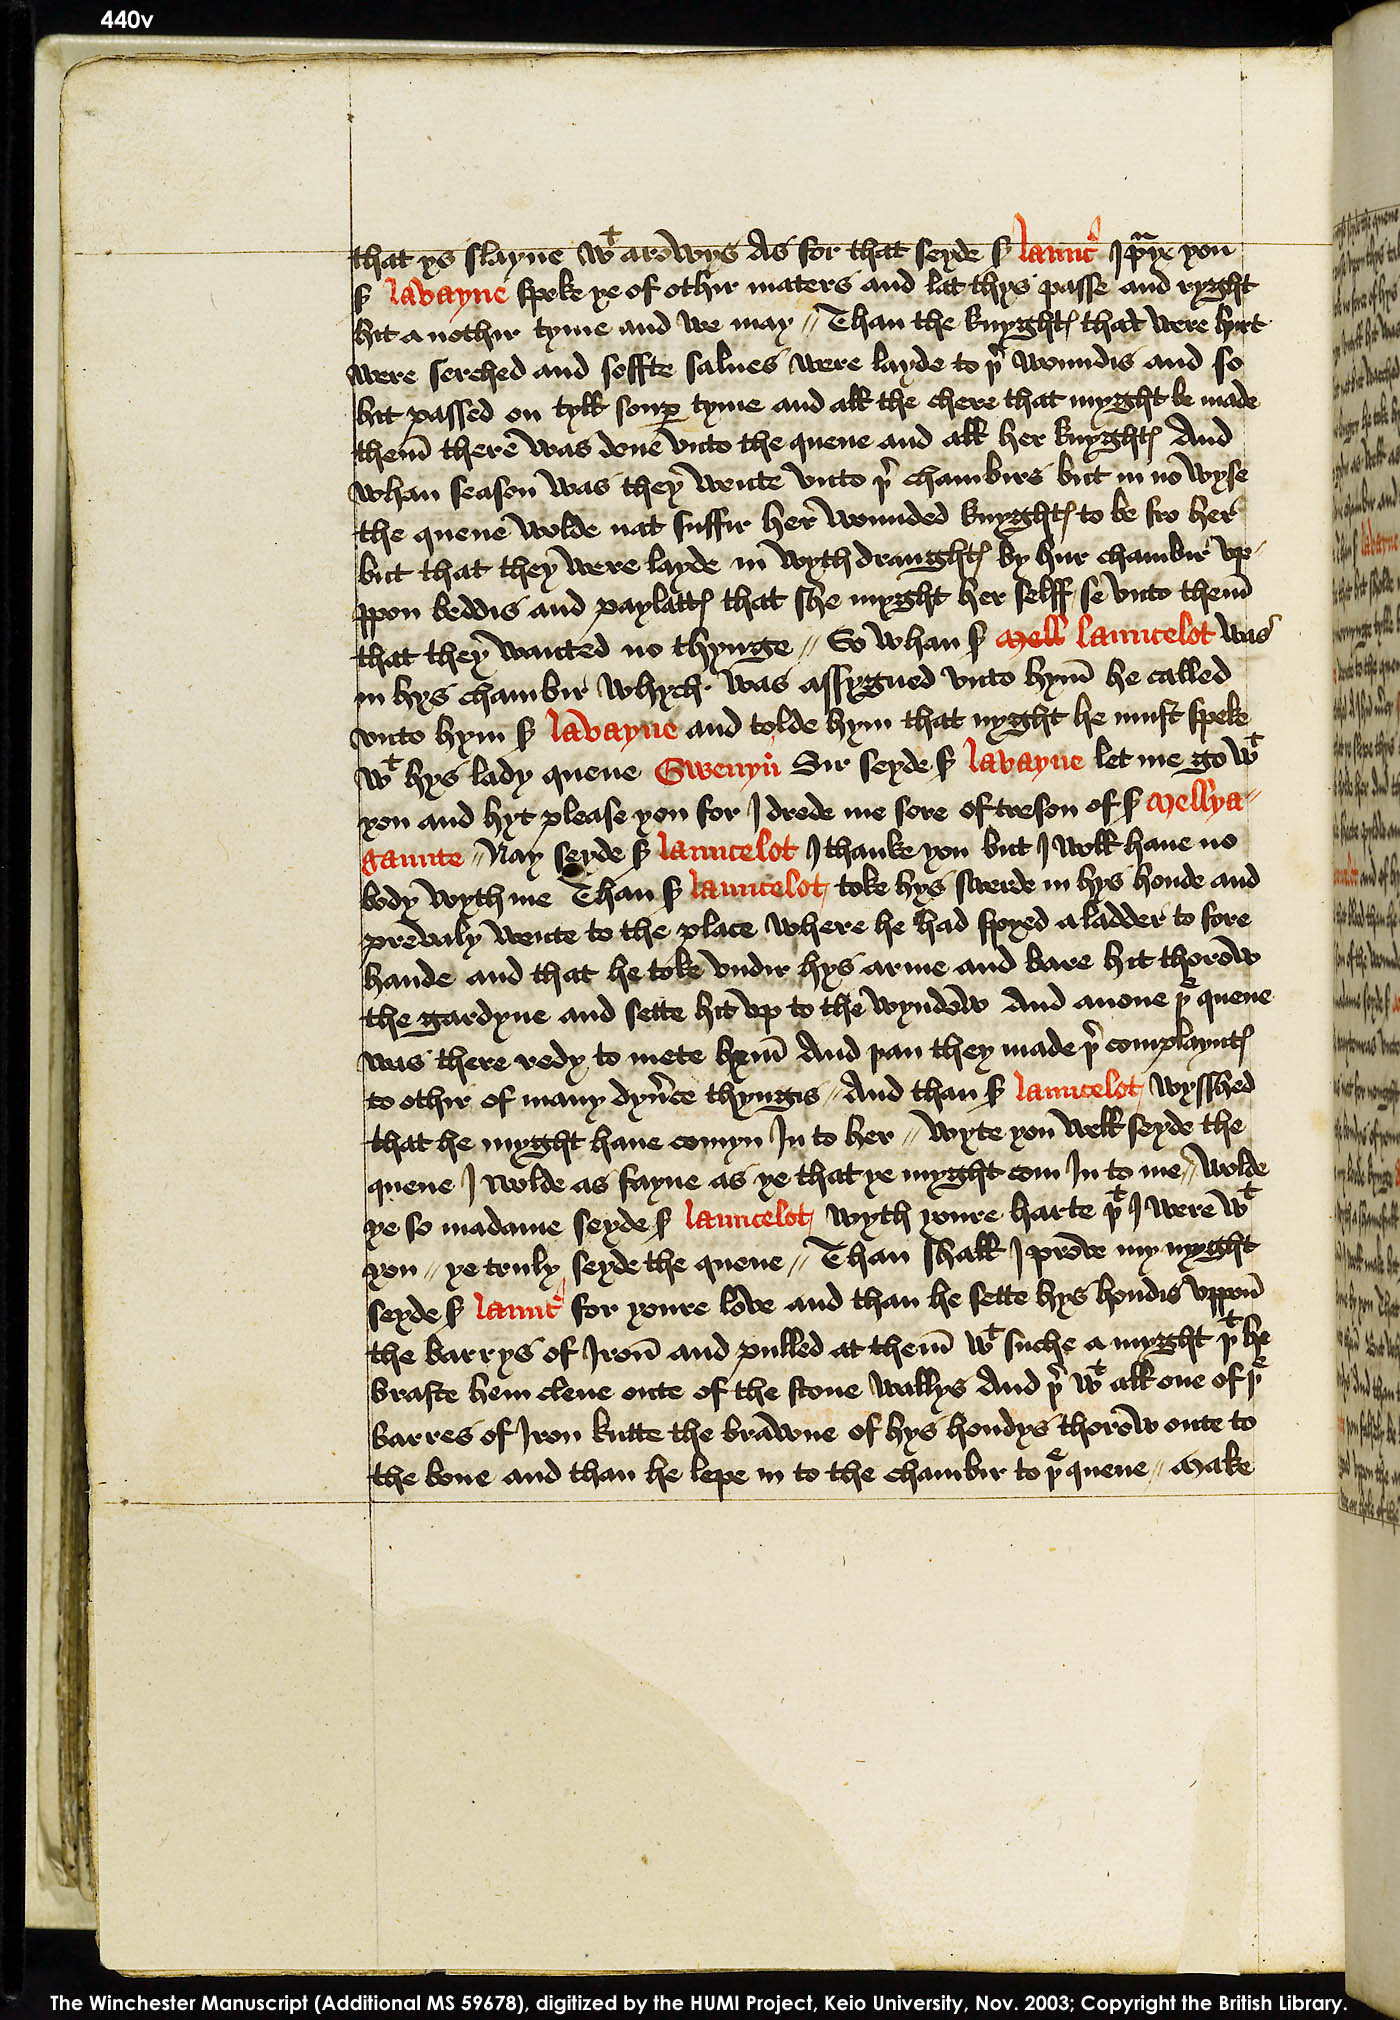 440v
that ys slayne wt arowys As for that seyde sʳ launcʼ I pray you
sʳ lavayne speke ye of othir maters and lat thys passe and ryght
hit a nothir tyme and we may // Than the knyghtes that were hurt
were serched and soffte salues were layde to þʳ woundis and so
hit passed on tyll souper tyme and all the chere that myght be made
them there was done vnto the quene and all her knyghtes And
whan season was they wente vnto þʳ chambirs but in no wyse
the quene wolde nat suffir her wounded knyghtes to be fro her
but that they were layde in wyth draughtes by hur chambir vp-
ppon beddis and paylattes that she myght her selff se vnto them
that they wanted no thynge // So whan sʳ Mell launcelot was
in hys chambir whych was assygned vnto hym he called
vnto hym sʳ lavayne and tolde hym that nyght he must speke
wt hys lady quene Gwenyuʳ Sir seyde sʳ lavayne let me go wt
you and hyt please you for I drede me sore of treson of sʳ Mellya-
gaunte // Nay seyde sʳ launcelot I thanke you but I woll haue no
body wyth me Than sʳ launcelot toke hys swerde in hys honde and
prevaly wente to the place where he had spyed a ladder to fore
hande and that he toke vndir hys arme and bare hit thorow
the gardyne and sette hit vp to the wyndow And anone þe quene
was there redy to mete hym And þan they made þʳ complayntes
to othir of many dyuʳce thyngis // And than sʳ launcelot wysshed
that he myght haue comyn In to her // wyte you well seyde the
quene I wolde as fayne as ye that ye myght com In to me // wolde
ye so madame seyde sʳ launcelot wyth youre harte þt I were wt
you // ye truly seyde the quene // Than shall I prove my myght
seyde sʳ launcʼ for youre love and than he sette hys hondis vppon
the barrys of Iron and pulled at them wt suche a myght þt he
braste hem clene oute of the stone wallys And þʳ wt all one of þe
barres of Iron kutte the brawne of hys hondys thorow oute to
the bone and than he lepe in to the chambir to þe quene // Make
The Winchester Manuscript (Additional MS 59678), digitized by the HUMI Project, Keio University, Nov. 2003; Copyright the British Library.